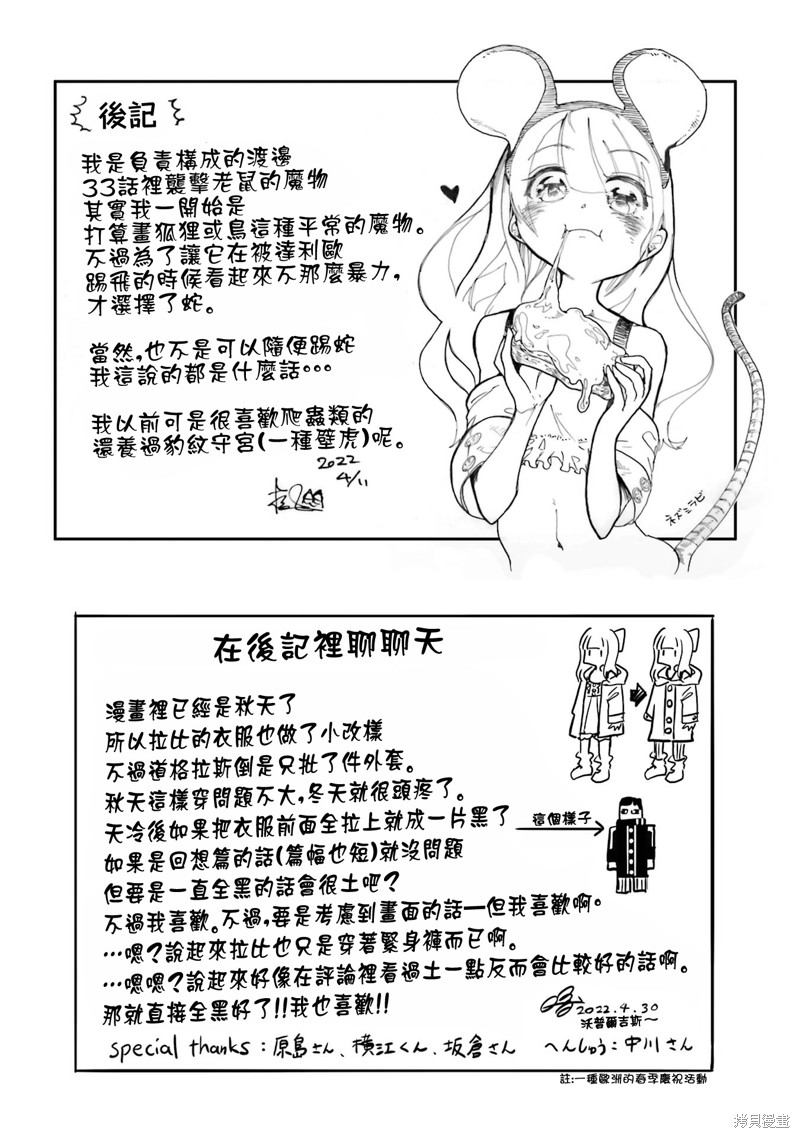 後記
我是負責構成的渡邊
33話裡襲擊老鼠的魔物
其實我一開始是
打算畫狐狸或鳥這種平常的魔物。
不過為了讓它在被達利歐
踢飛的時候看起來不那麼暴力,
才選擇了蛇。
當然,也不是可以隨便踢蛇
我這說的都是什麼話⋯
我以前可是很喜歡爬蟲類的
還養過豹紋守宮(一種壁虎)呢。
2022
4/11
ネズミラビ
在後記裡聊聊天
漫畫裡已經是秋天了
所以拉比的衣服也做了小改樣
不過道格拉斯倒是只批了件外套。
秋天這樣穿問題不大,冬天就很頭疼了。
天冷後如果把衣服前面全拉上就成一片黑了
這個樣子
如果是回想篇的話(篇幅也短)就沒問題
但要是一直全黑的話會很土吧?
不過我喜歡。不過,要是考慮到畫面的話一但我喜歡啊。
⋯嗯?說起來拉比也只是穿著緊身褲而已啊。
⋯嗯嗯?說起來好像在評論裡看過土一點反而會比較好的話啊。
那就直接全黑好了!!我也喜歡!!
2022.4.30
沃普爾吉斯～
special thanks:原島さん、横江くん、坂倉さん へんしゅう:中川さん
註:一種歐洲的春季慶祝活動
拷貝漫畫